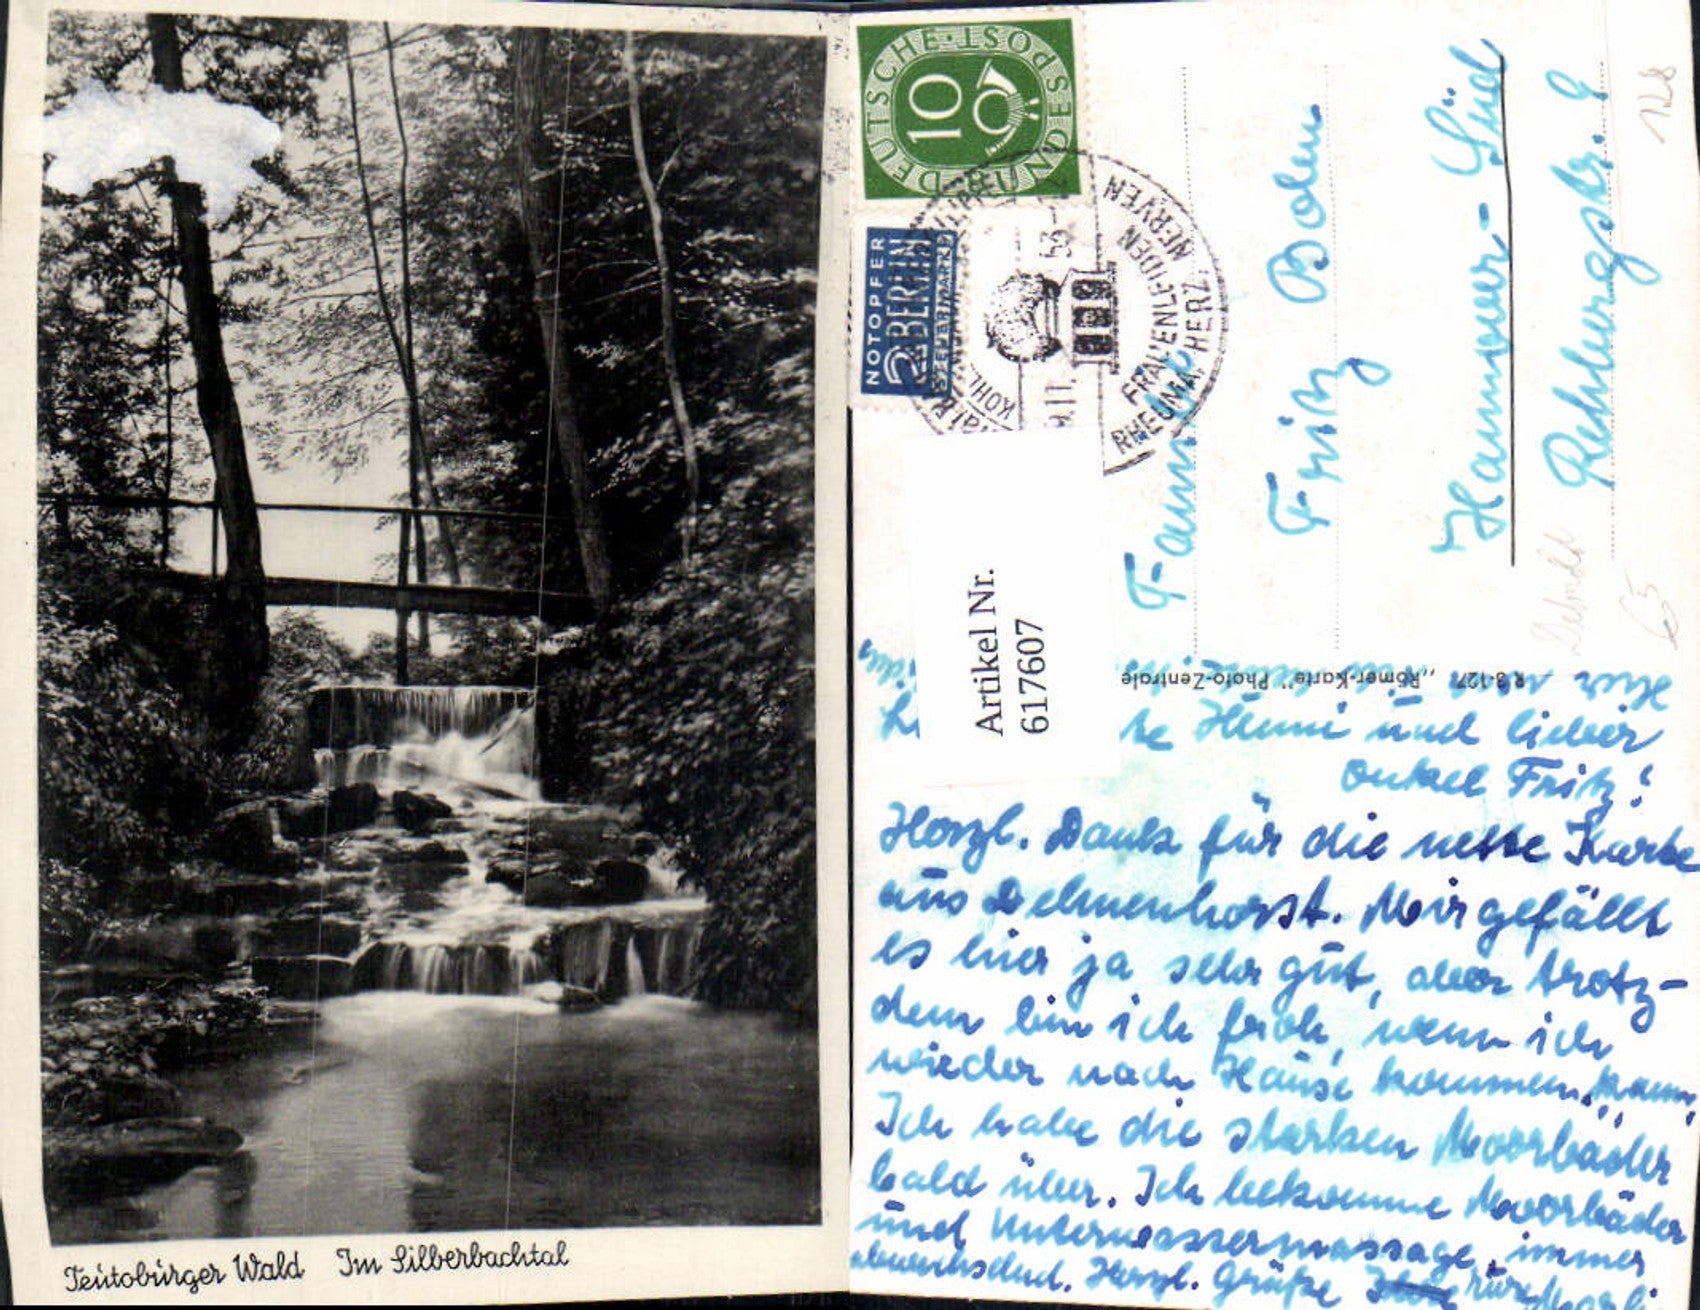 Teutoburger Wald Im Silberbachtal
DEUTSCHE·BUNDESPOST
10
NOTOPFER
2 BERLIN
STEUERMARKE
FRAUENLEIDEN NERVEN
RHEUMA HERZ
KOHL
Artikel Nr.
617607
Familie
Fritz Boden
Hannover-Süd
Rehbergstr. 9
128
65
"Römer-Karte" Photo-Zentrale R 8-127
und lieber
Onkel Fritz!
Herzl. Dank für die nette Karte
aus Delmenhorst. Mir gefällt
es hier ja sehr gut, aber trotz-
dem bin ich froh, wenn ich
wieder nach Hause kommen kann.
Ich habe die starken Moorbäder
bald über. Ich bekomme Moorbäder
und Unterwassermassage, immer
abwechselnd. Herzl. Grüße